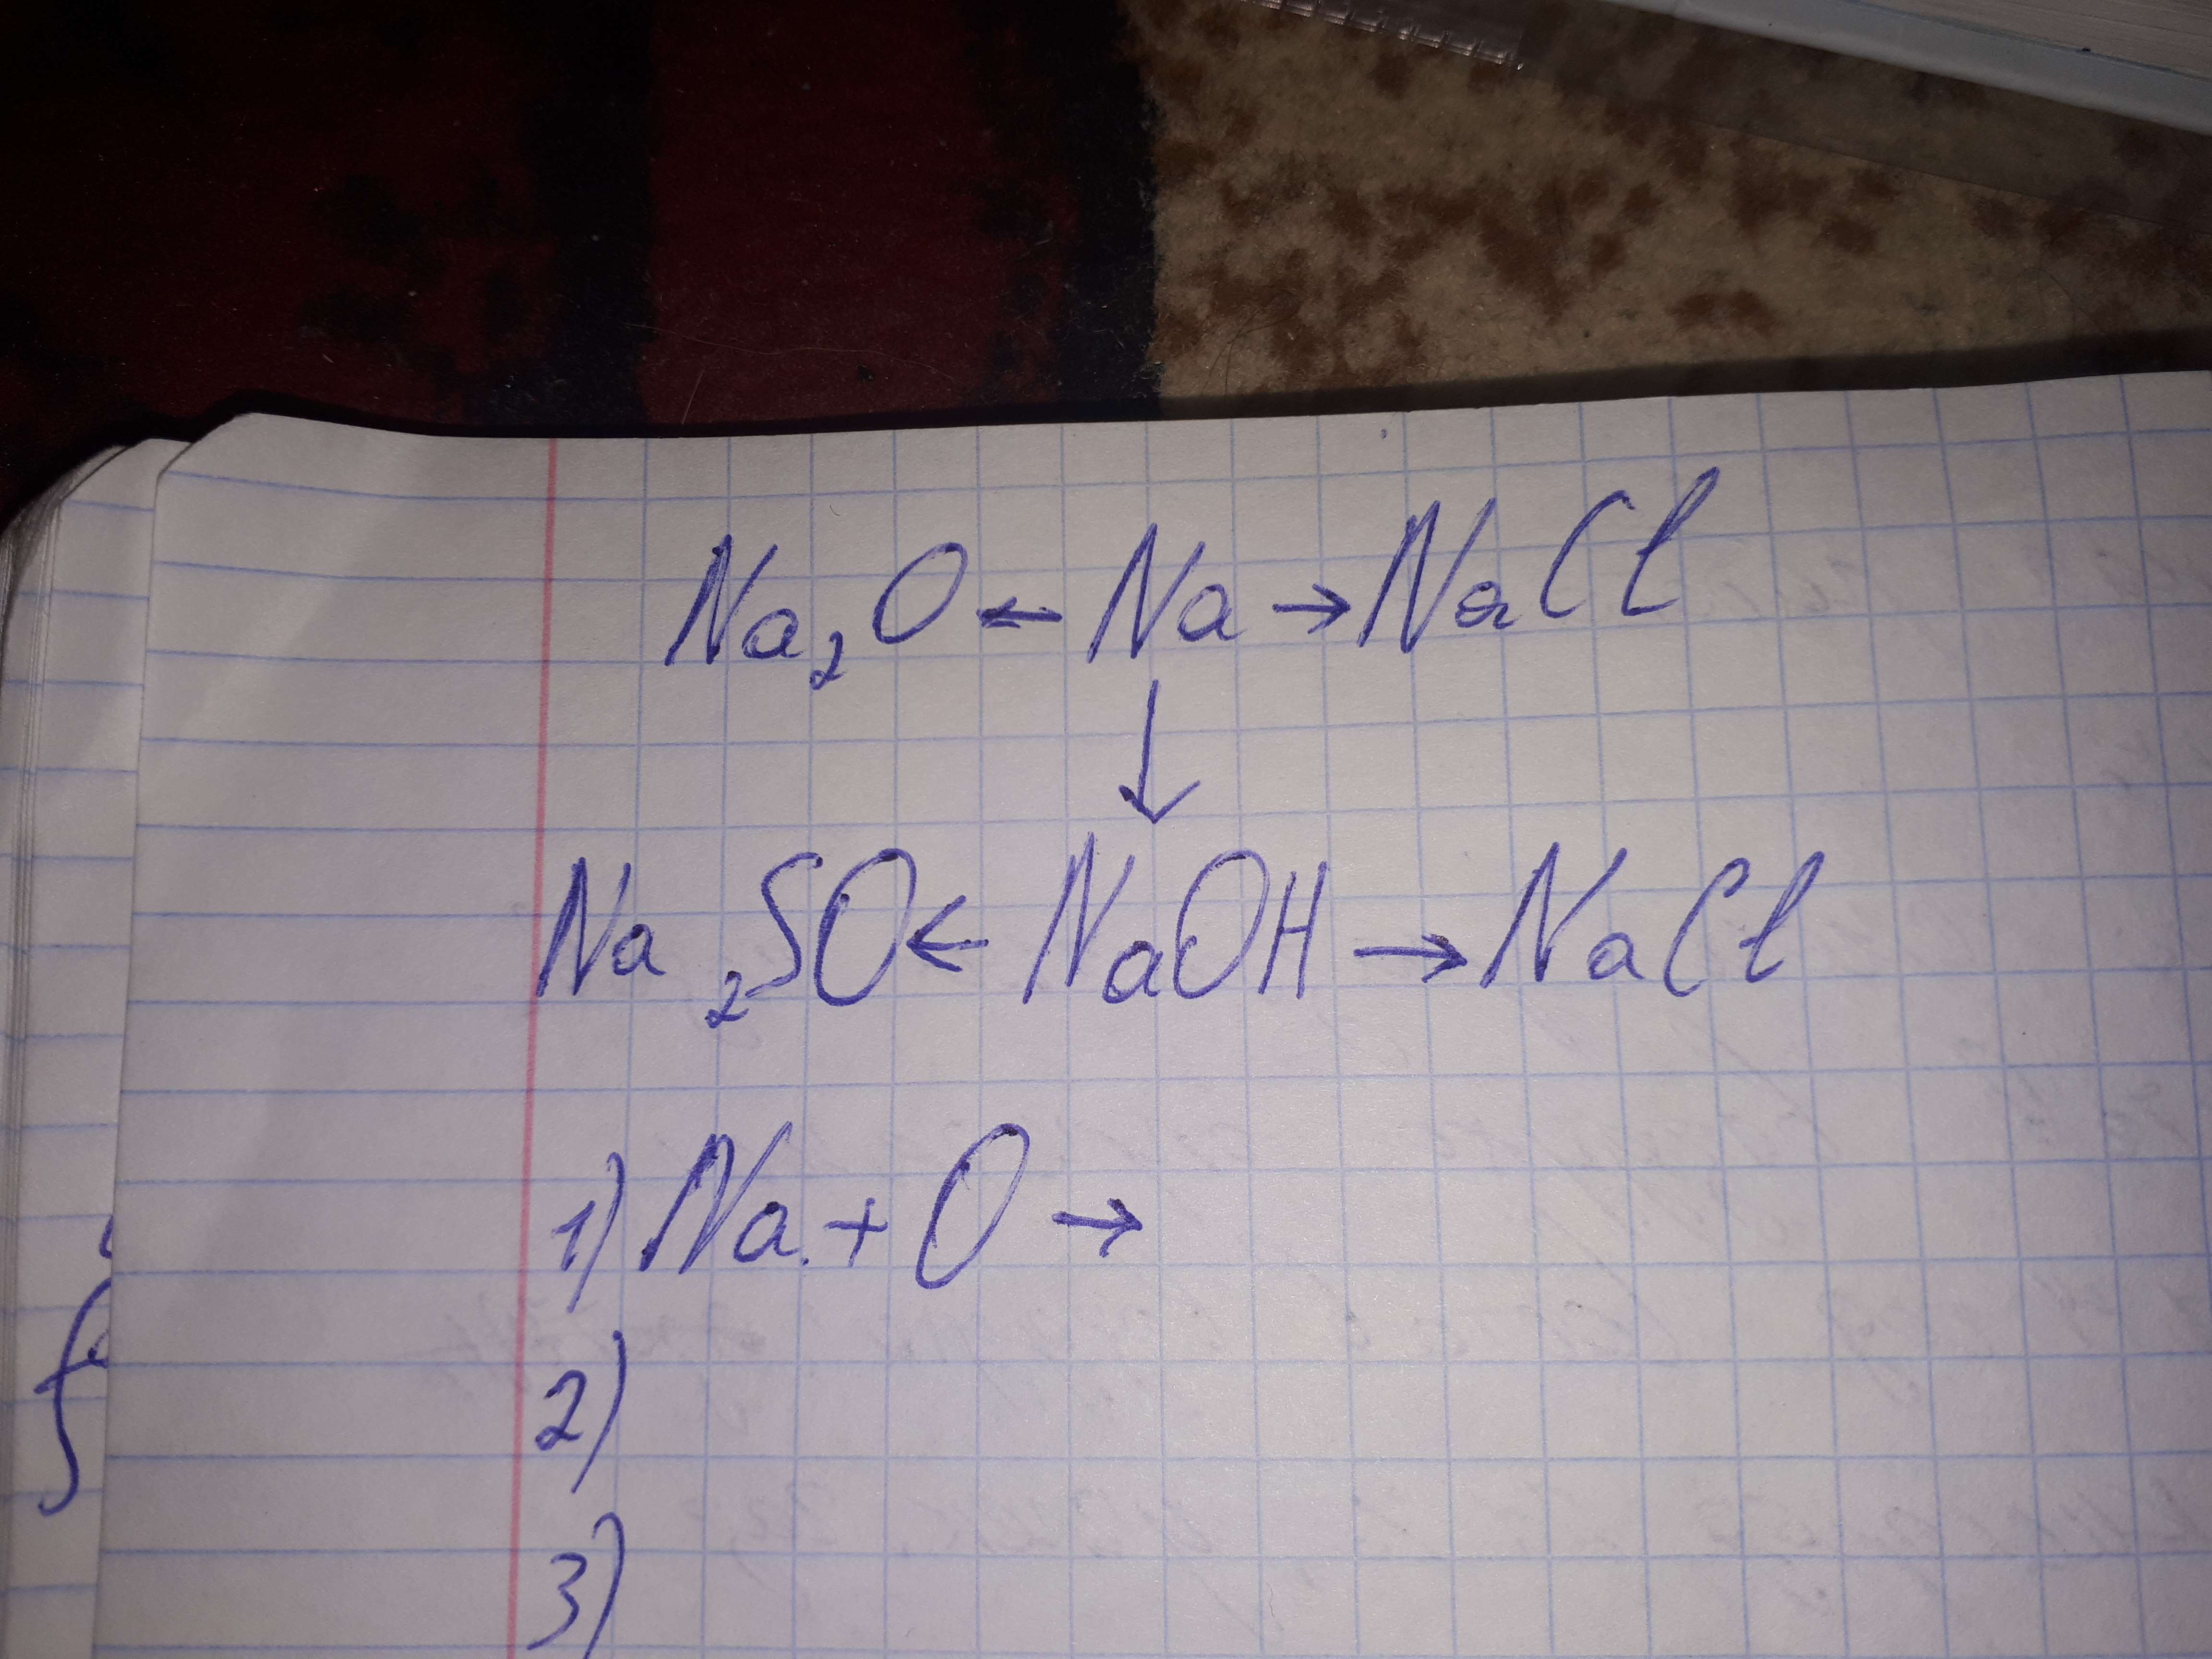 Na₂O ← Na → NaCl
↓
Na ₂SO ← NaOH → NaCl
1) Na + O →
2)
3)